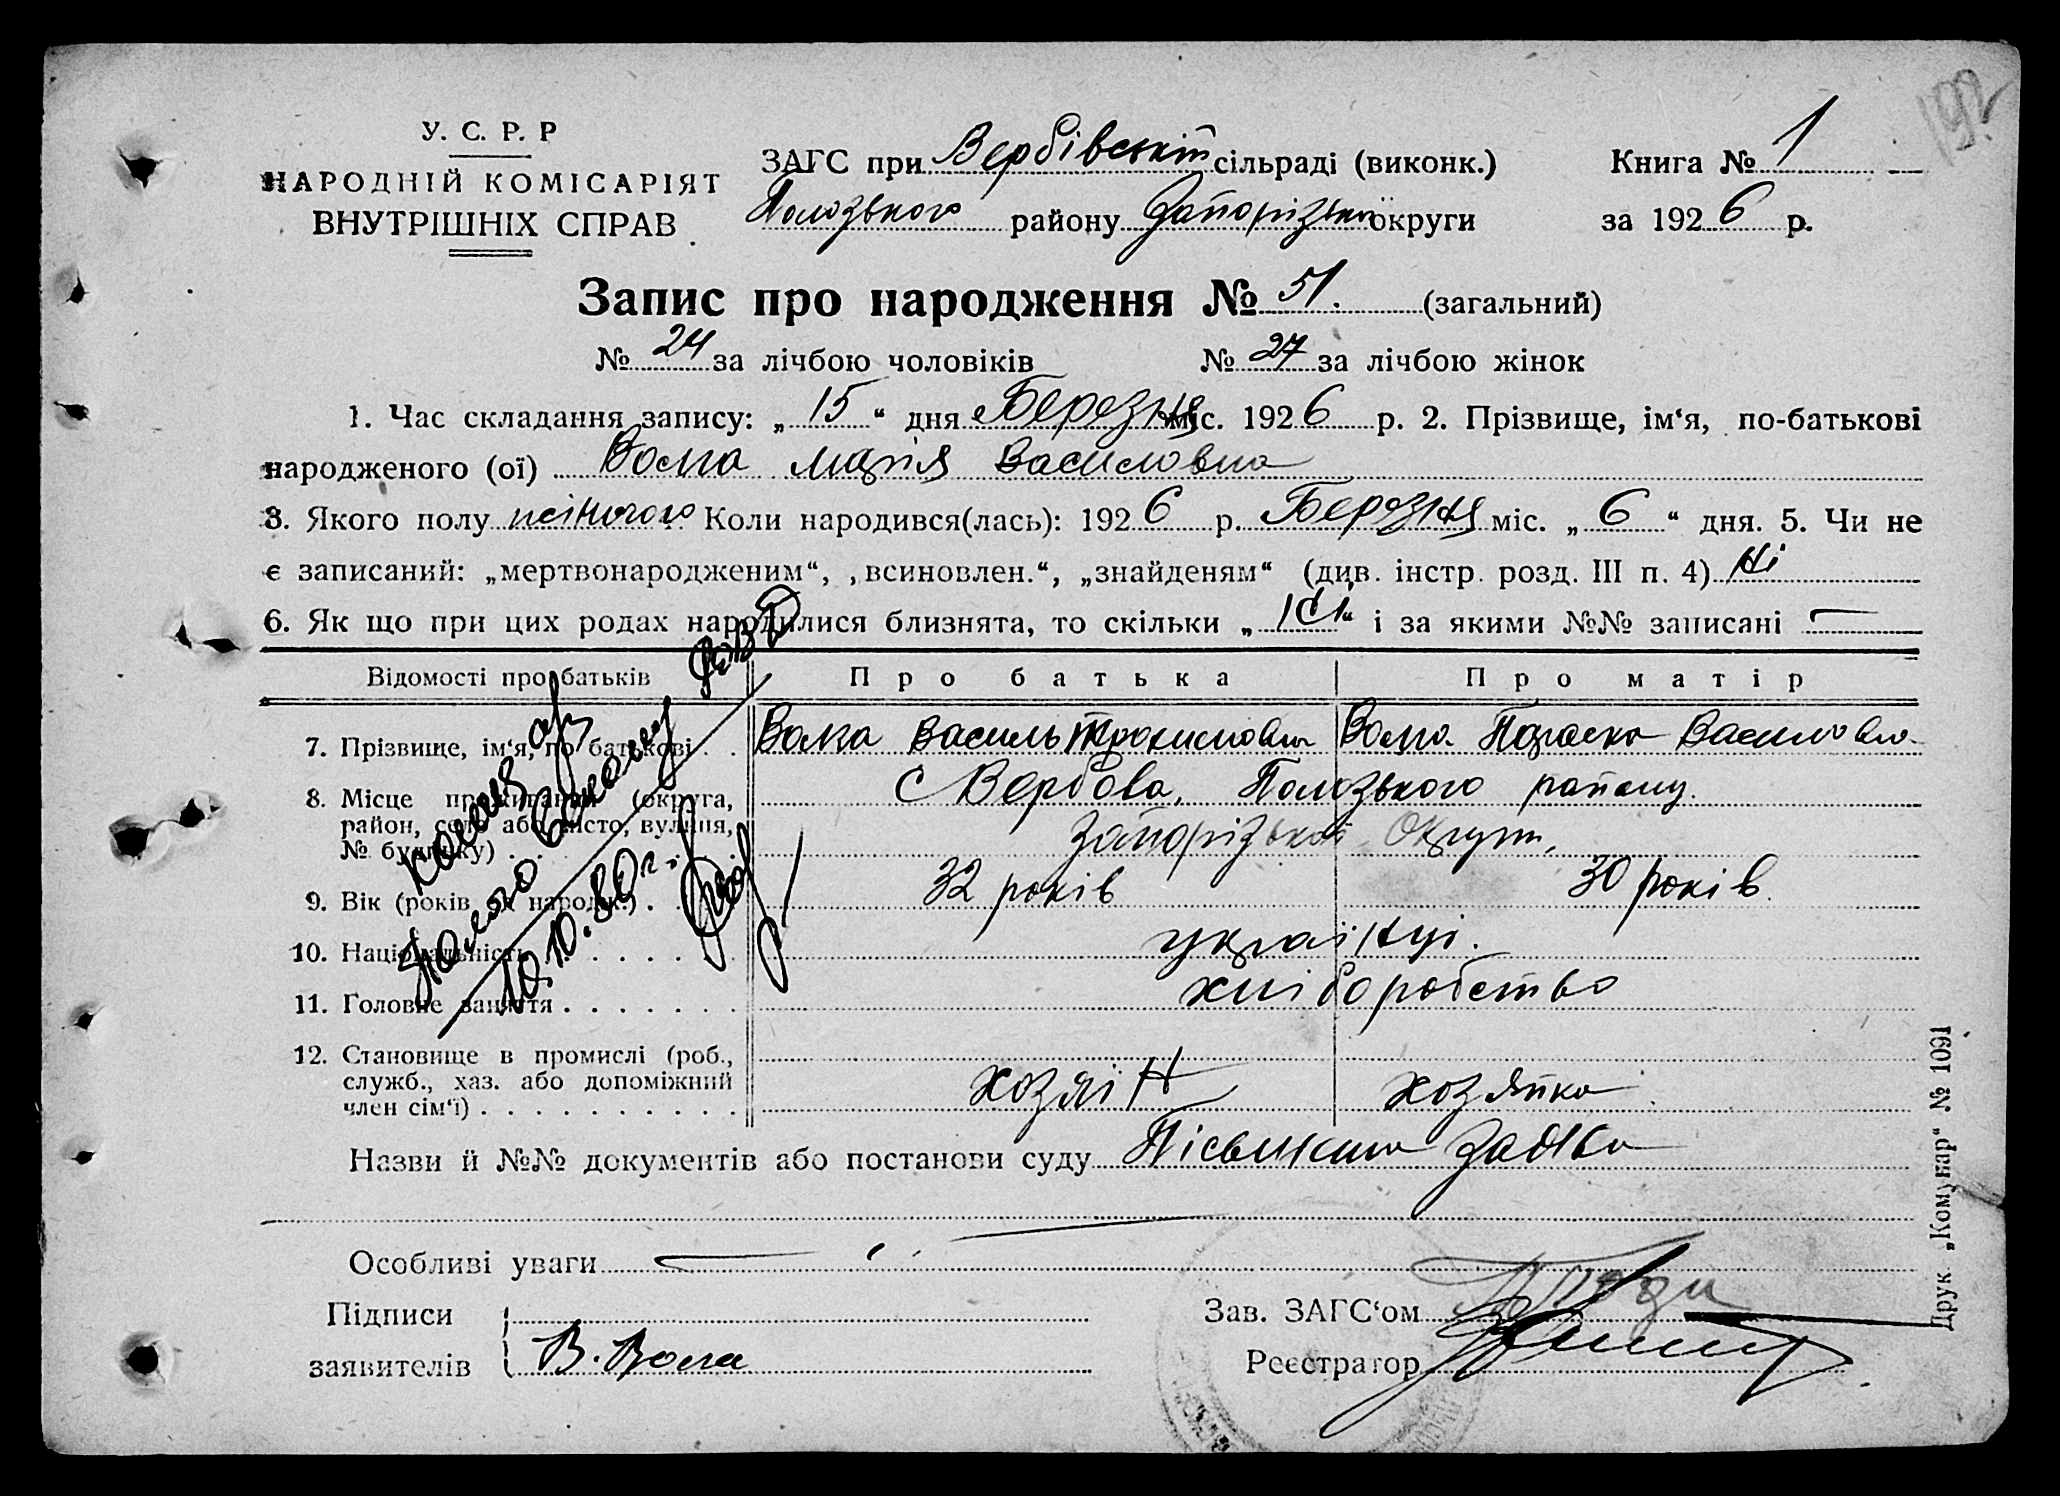 192
У. С. Р. Р
НАРОДНІЙ КОМІСАРІЯТ
ВНУТРІШНІХ СПРАВ
ЗАГС при Вербівскій сільраді (виконк.)
Полозького району Запорізької округи
Книга № 1
за 1926 р.
Запис про народження № 51. (загальний)
№ 24 за лічбою чоловіків № 27 за лічбою жінок
1. Час складання запису: „15“ дня Березня міс. 1926 р. 2. Прізвище, ім‘я, по-батькові
народженого (ої) Волга Марія Василовна
3. Якого полу жіночого Коли народився(лась): 1926 р. Березня міс. „6“ дня. 5. Чи не
є записаний: „мертвонародженим“, „всиновлен.“, „знайденям“ (див. інстр. розд. III п. 4) Ні
6. Як що при цих родах народилися близнята, то скільки „ “ і за якими №№ записані —
Відомості про батьків Про батька Про матір
7. Прізвище, ім‘я, по батькові . . Волга Василь Волга Параска Василовна
8. Місце проживання (округа, район, село або місто, вулиця, № будинку) . . . с Вербова, Полозького району.
Запорізької Округи,
9. Вік (років од народж.) . 32 років 30 років.
10. Національність . . . . . . . українці.
11. Головне заняття . . . . . . . хліборобство
12. Становище в промислі (роб., служб., хаз. або допоміжний член сім‘ї) . . . . . . . . . . . хозяїн хозяйка
10.10.80 г.
Назви й №№ документів або постанови суду Пісьменна заява
Особливі уваги —
Підписи
заявителів В. Волга
Зав. ЗАГС‘ом
Реєстратор
Друк „Комунар“ № 1091